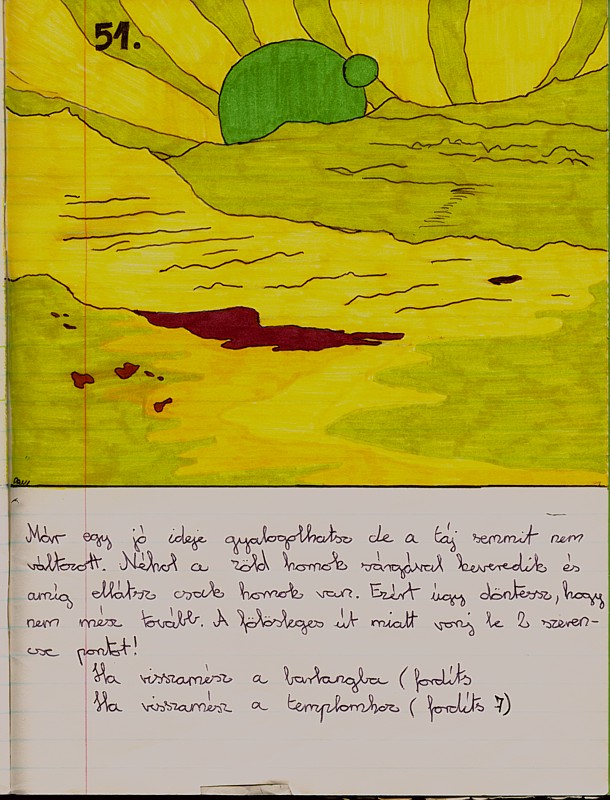 51.
Már egy jó ideje gyalogolhatsz de a táj semmit nem
változott. Néhol a zöld homok sárgával keveredik és
amíg ellátsz csak homok van. Ezért úgy döntesz, hogy
nem mész tovább. A fölösleges út miatt vonj le 2 szeren-
cse pontot!
Ha visszamész a barlangba (fordíts
Ha visszamész a templomhoz (fordíts 7)